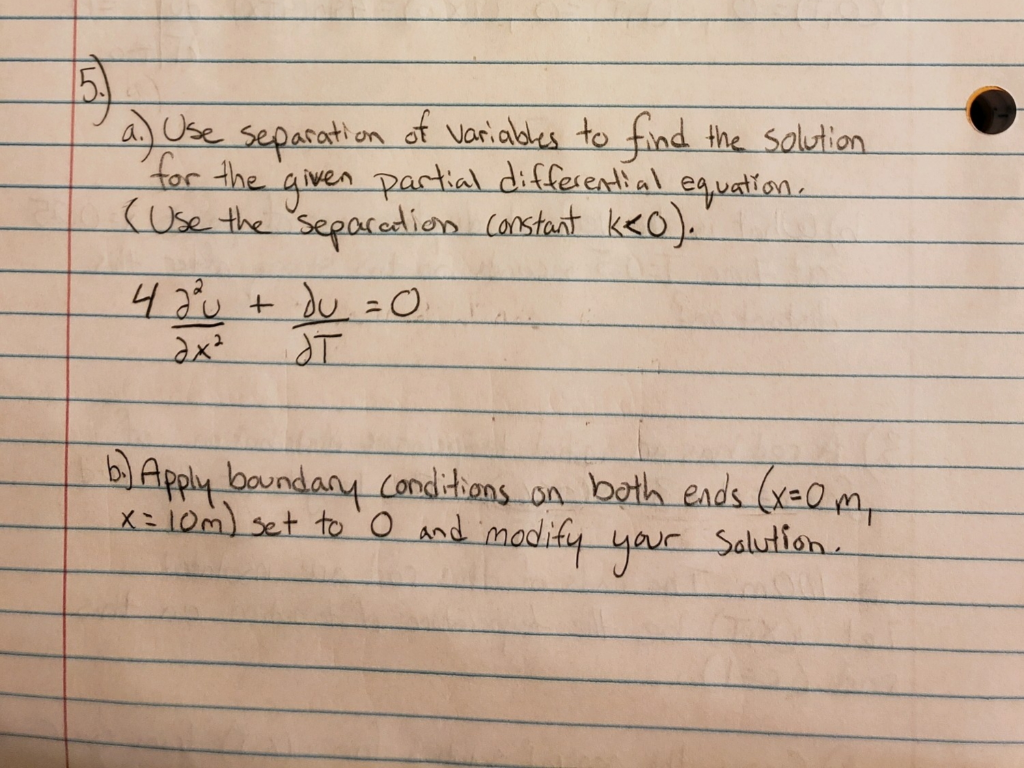 5.)
a.) Use separation of variables to find the solution
for the given partial differential equation.
(Use the separation constant k<0).
4 ∂²u/∂x² + ∂u/∂T = 0
b.) Apply boundary conditions on both ends (x=0 m,
x=10m) set to 0 and modify your solution.